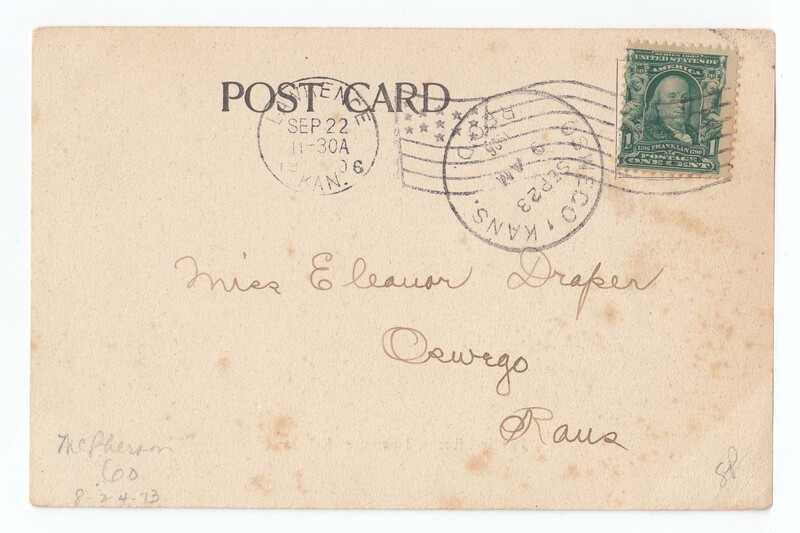 POST CARD
LAWRENCE
SEP 22
11-30A
1906
KAN.
OSWEGO, KANS.
REC'D.
SEP 23
9 AM
1906
SERIES 1902
UNITED STATES OF
AMERICA
1 FRANKLIN 1
POSTAGE
ONE CENT
Miss Eleanor Draper
Oswego
Kans
McPherson
Co
8-24-73